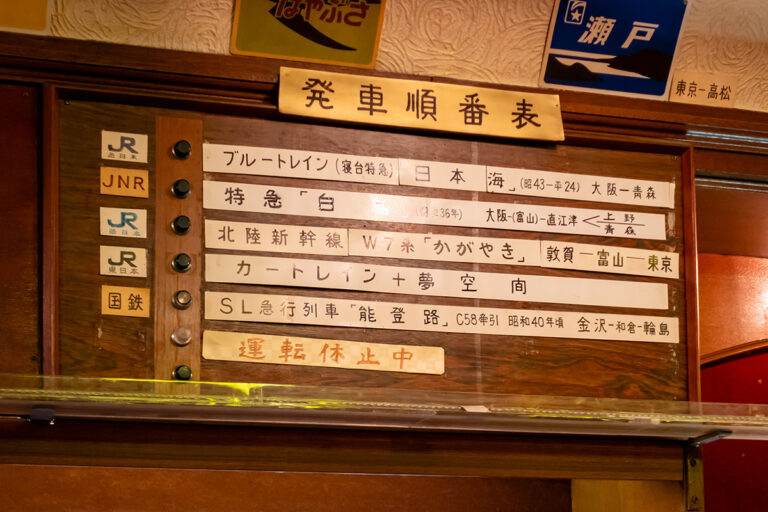 はやぶさ
瀬戸
東京－高松
発車順番表
JR
JNR
JR
JR
東日本
国鉄
ブルートレイン(寝台特急)「日本海」(昭43－平24) 大阪－青森
特急「白 36年) 大阪-(富山)-直江津 上野 青森
北陸新幹線 W7系「かがやき」 敦賀－富山－東京
カートレイン＋夢空間
SL急行列車「能登路」 C58牽引 昭和40年頃 金沢-和倉-輪島
運転休止中